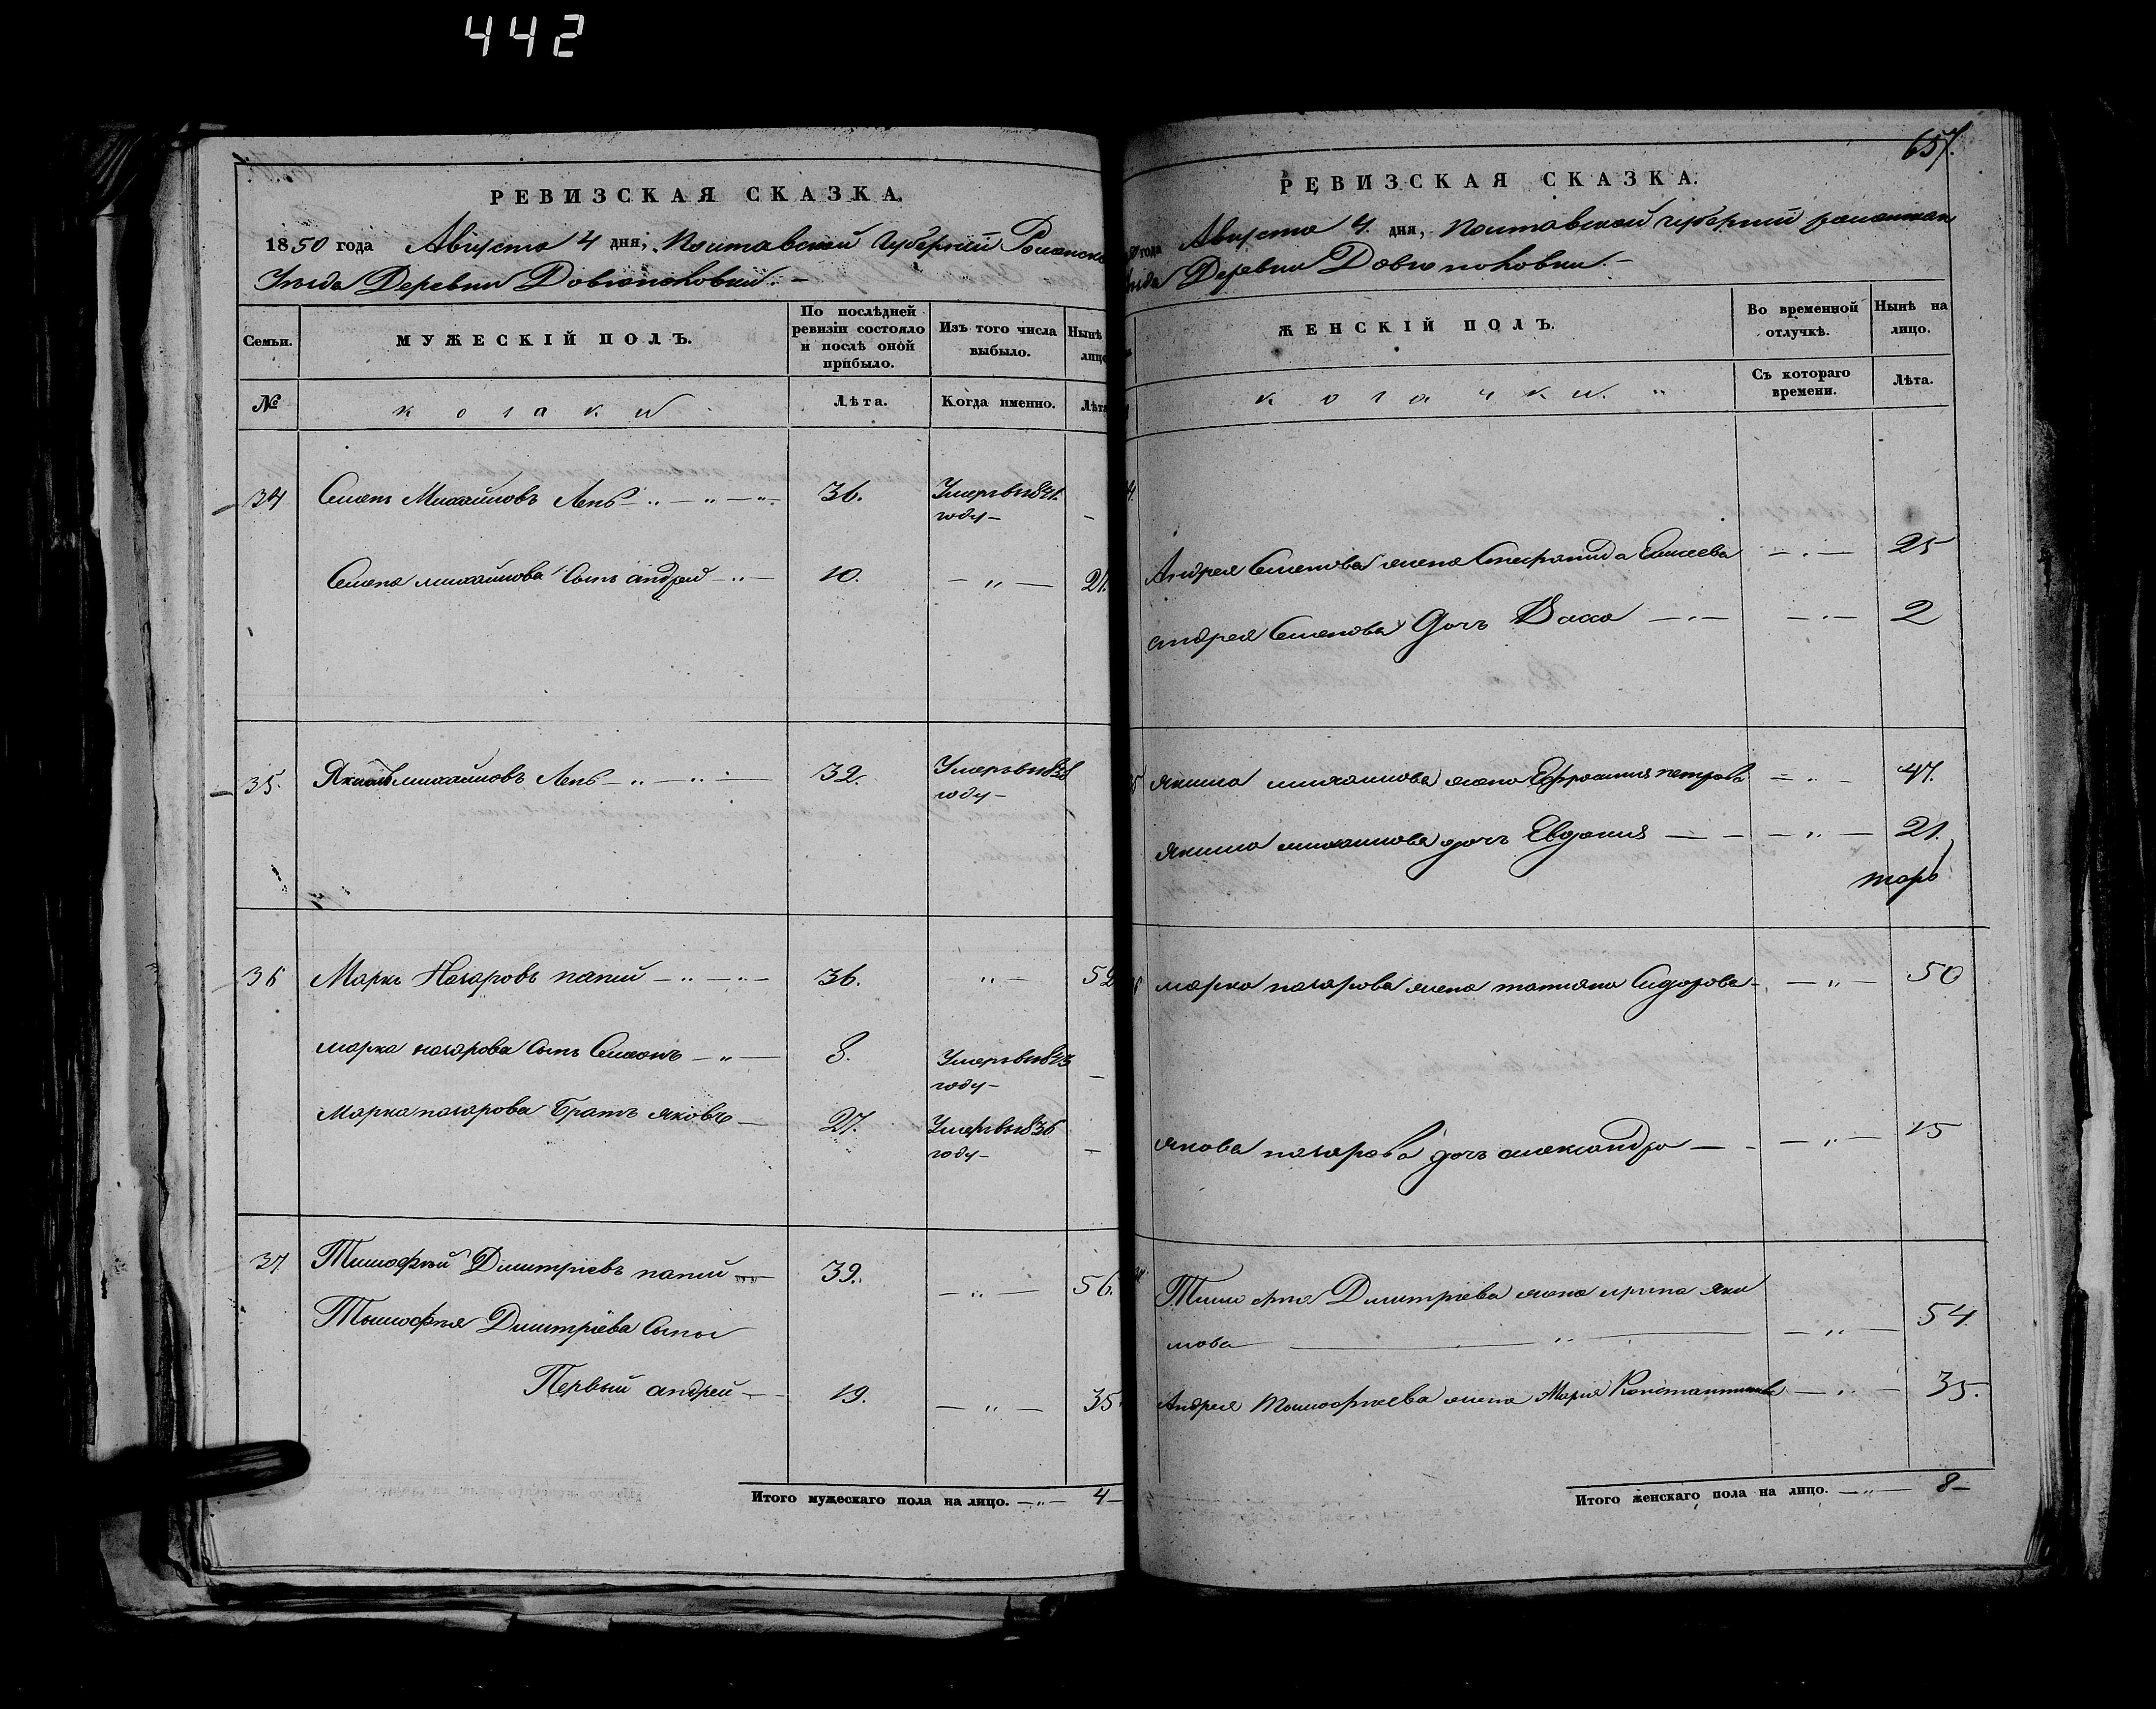 442
РЕВИЗСКАЯ СКАЗКА.
1850 года Августа 4 дня, Полтавской Губернии Роменска
Уезда Деревни
Семьи.
МУЖЕСКІЙ ПОЛЪ.
По послѣдней ревизіи состояло и послѣ оной прибыло.
Изъ того числа выбыло.
Нынѣ лицо
№
козаки
Лѣта.
Когда именно.
Лѣта
34 Семенъ Михайловъ Лепъ 36. Умеръ в 1841. году
Семена Михайлова Сынъ андрей 10. 27.
35. Якимъ михайловъ Лепъ 32. Умеръ в 1838 году
36 Марко Назаровъ папий 36. 52
марка назарова Сынъ 8. Умеръ в 1843 году
Марка назарова Братъ яковъ 27. Умеръ в 1836 году
37. Тимофѣй Димитріевъ папий 39. 56.
Тимофѣя Димитріева Сыны
Первый андрей 19. 35.
Итого мужескаго пола на лицо. 4
657.
РЕВИЗСКАЯ СКАЗКА.
года Августа 4. дня, Полтавской губерніи роменскаго
Деревни
ЖЕНСКІЙ ПОЛЪ.
Во временной отлучкѣ.
Нынѣ на лицо.
козачки.
Съ котораго времени.
Лѣта.
Андрея Семенова жена Елисеева 25
андрея Семенова Дочь Васса 2
якима михайлова жена Ефросинія петрова 47.
якима михайлова дочь Евдокия 21.
марка назарова жена татияна Сидорова 50
якова назарова дочь александра 15
Тимофѣя Димитріева жена ирина яки
мова 54
Андрея Тимофѣева жена Мария Константинова 35.
Итого женскаго пола на лицо. 8